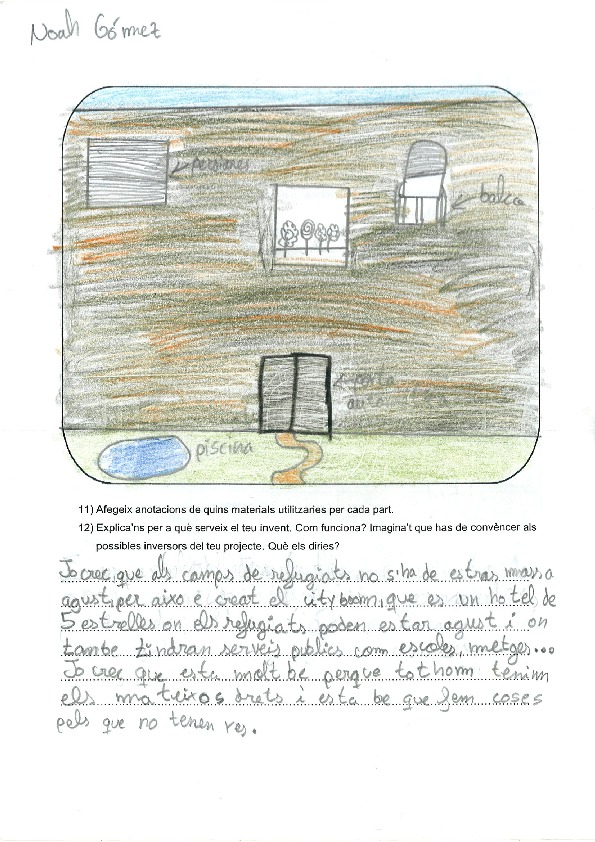 Noah Gómez
persianes
balco
porta
piscina
11) Afegeix anotacions de quins materials utilitzaries per cada part.
12) Explica'ns per a què serveix el teu invent. Com funciona? Imagina't que has de convèncer als
possibles inversors del teu projecte. Què els diries?
Jo crec que als camps de refugiats no s'ha de estras massa
agust, per aixo e creat el cityboom, que es un hotel de
5 estrelles on els refugiats poden estar agust i on
tambe tindran serveis publics com escoles, metges...
Jo crec que esta molt be perque tothom tenim
els mateixos drets i esta be que fem coses
pels que no tenen res.